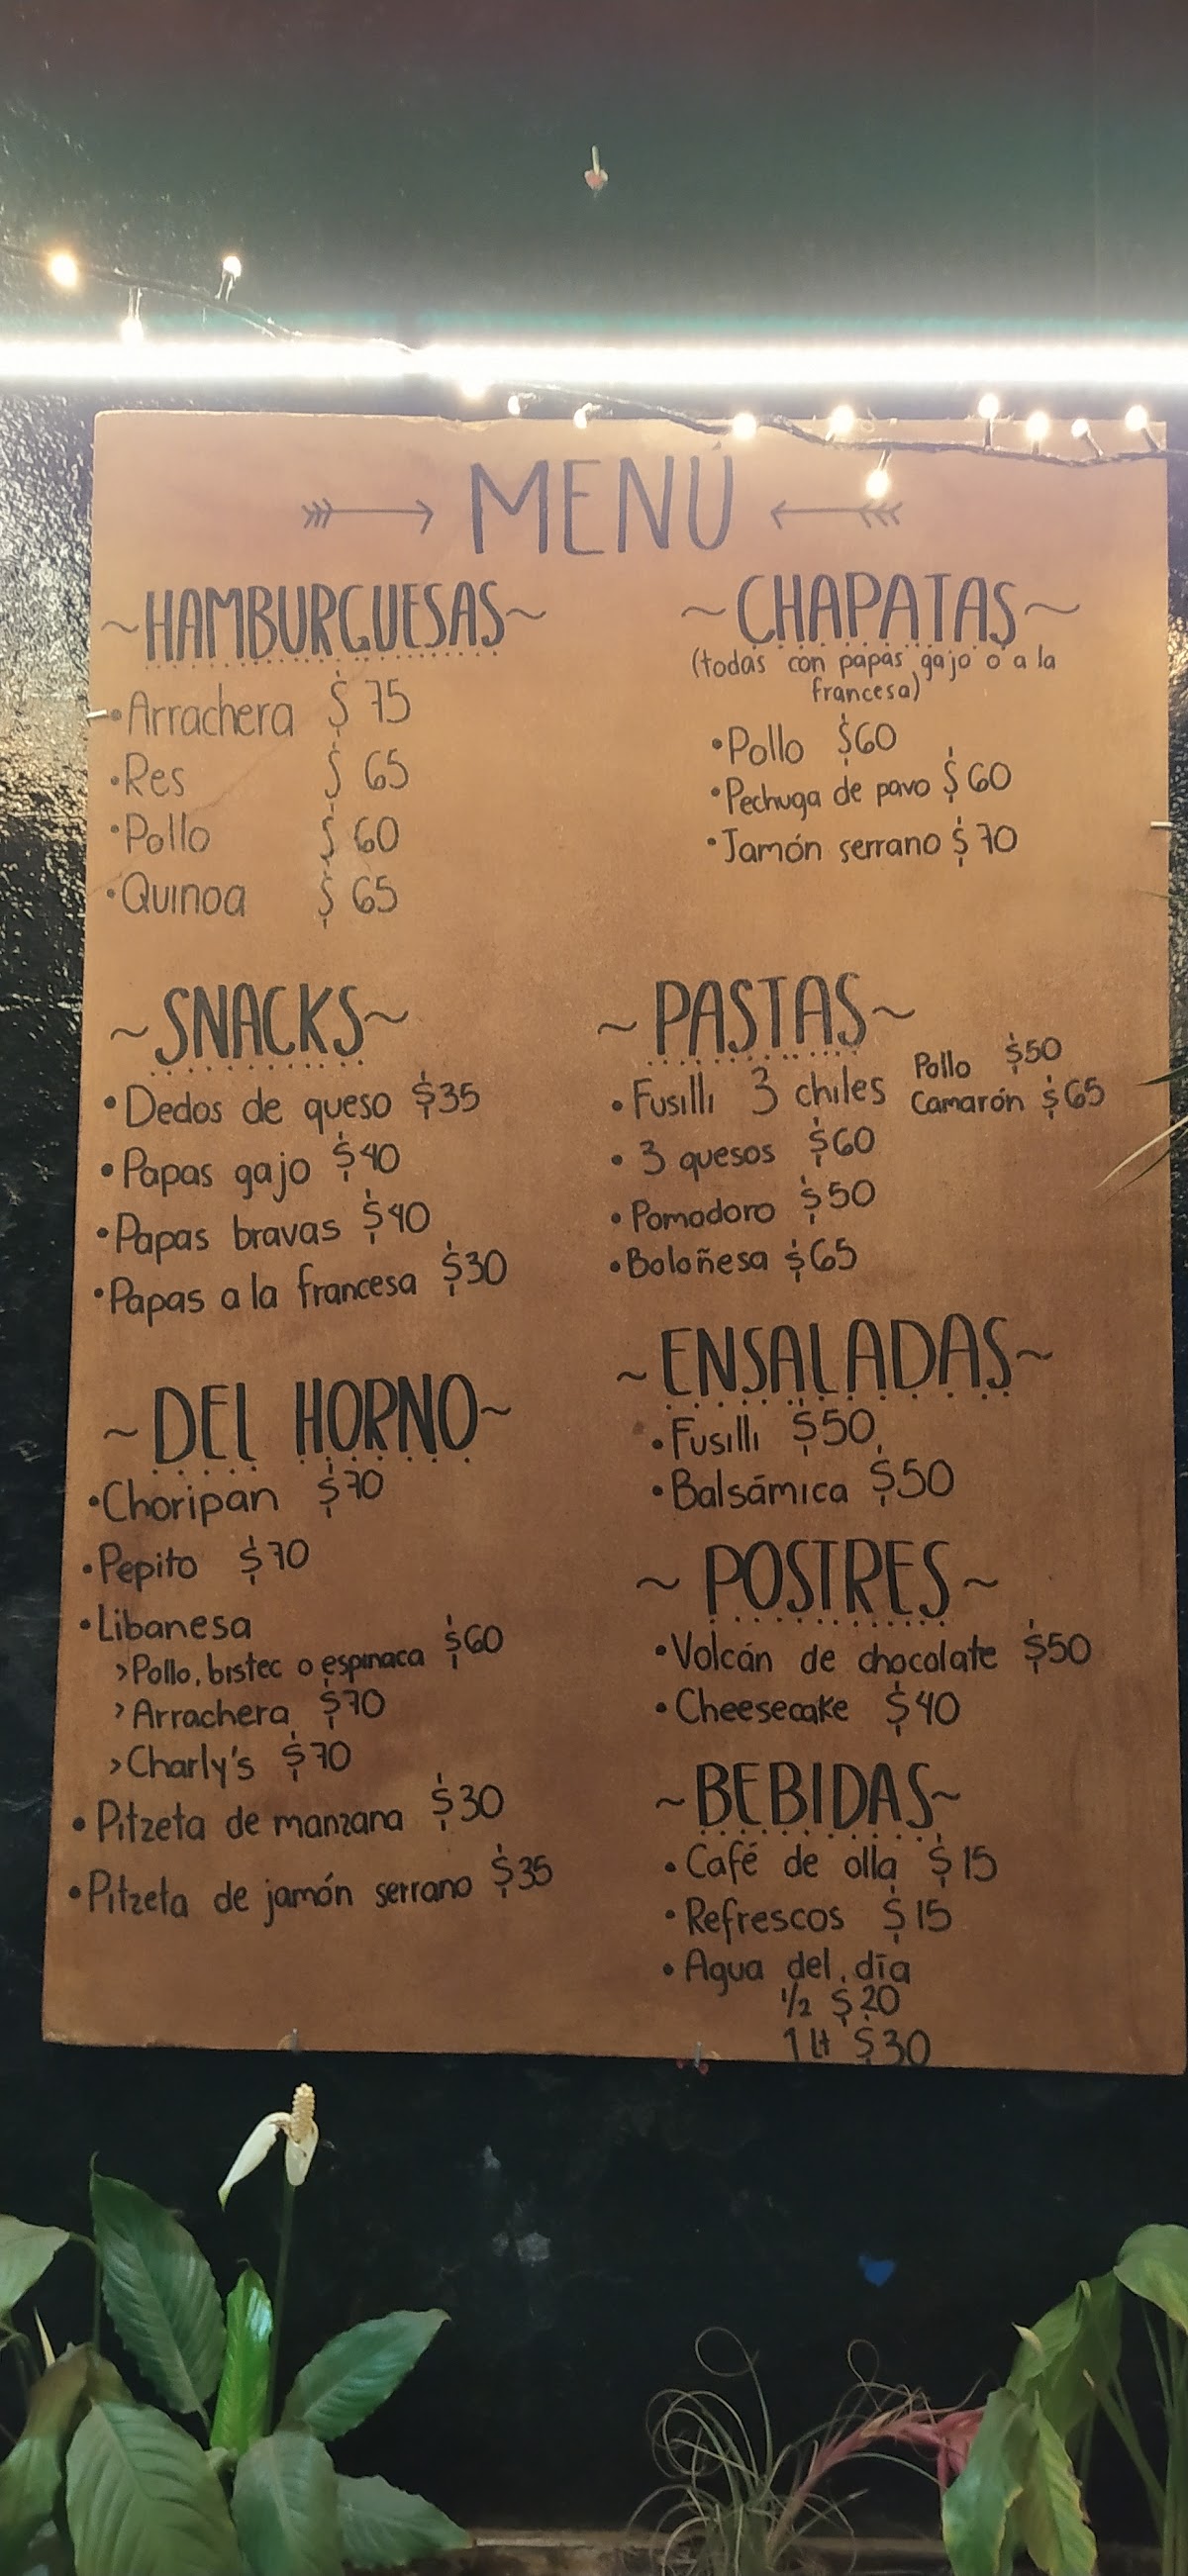 MENÚ
~HAMBURGUESAS~
•Arrachera $75
•Res $65
•Pollo $60
•Quinoa $65
~SNACKS~
•Dedos de queso $35
•Papas gajo $40
•Papas bravas $40
•Papas a la francesa $30
~DEL HORNO~
•Choripan $70
•Pepito $70
•Libanesa
>Pollo, bistec o espinaca $60
>Arrachera $70
>Charly's $70
•Pitzeta de manzana $30
•Pitzeta de jamón serrano $35
~CHAPATAS~
(todas con papas gajo o a la
francesa)
•Pollo $60
•Pechuga de pavo $60
•Jamón serrano $70
~PASTAS~
•Fusilli 3 chiles Pollo $50
Camarón $65
•3 quesos $60
•Pomodoro $50
•Boloñesa $65
~ENSALADAS~
•Fusilli $50
•Balsámica $50
~POSTRES~
•Volcán de chocolate $50
•Cheesecake $40
~BEBIDAS~
•Café de olla $15
•Refrescos $15
•Agua del día
1/2 $20
1 Lt $30